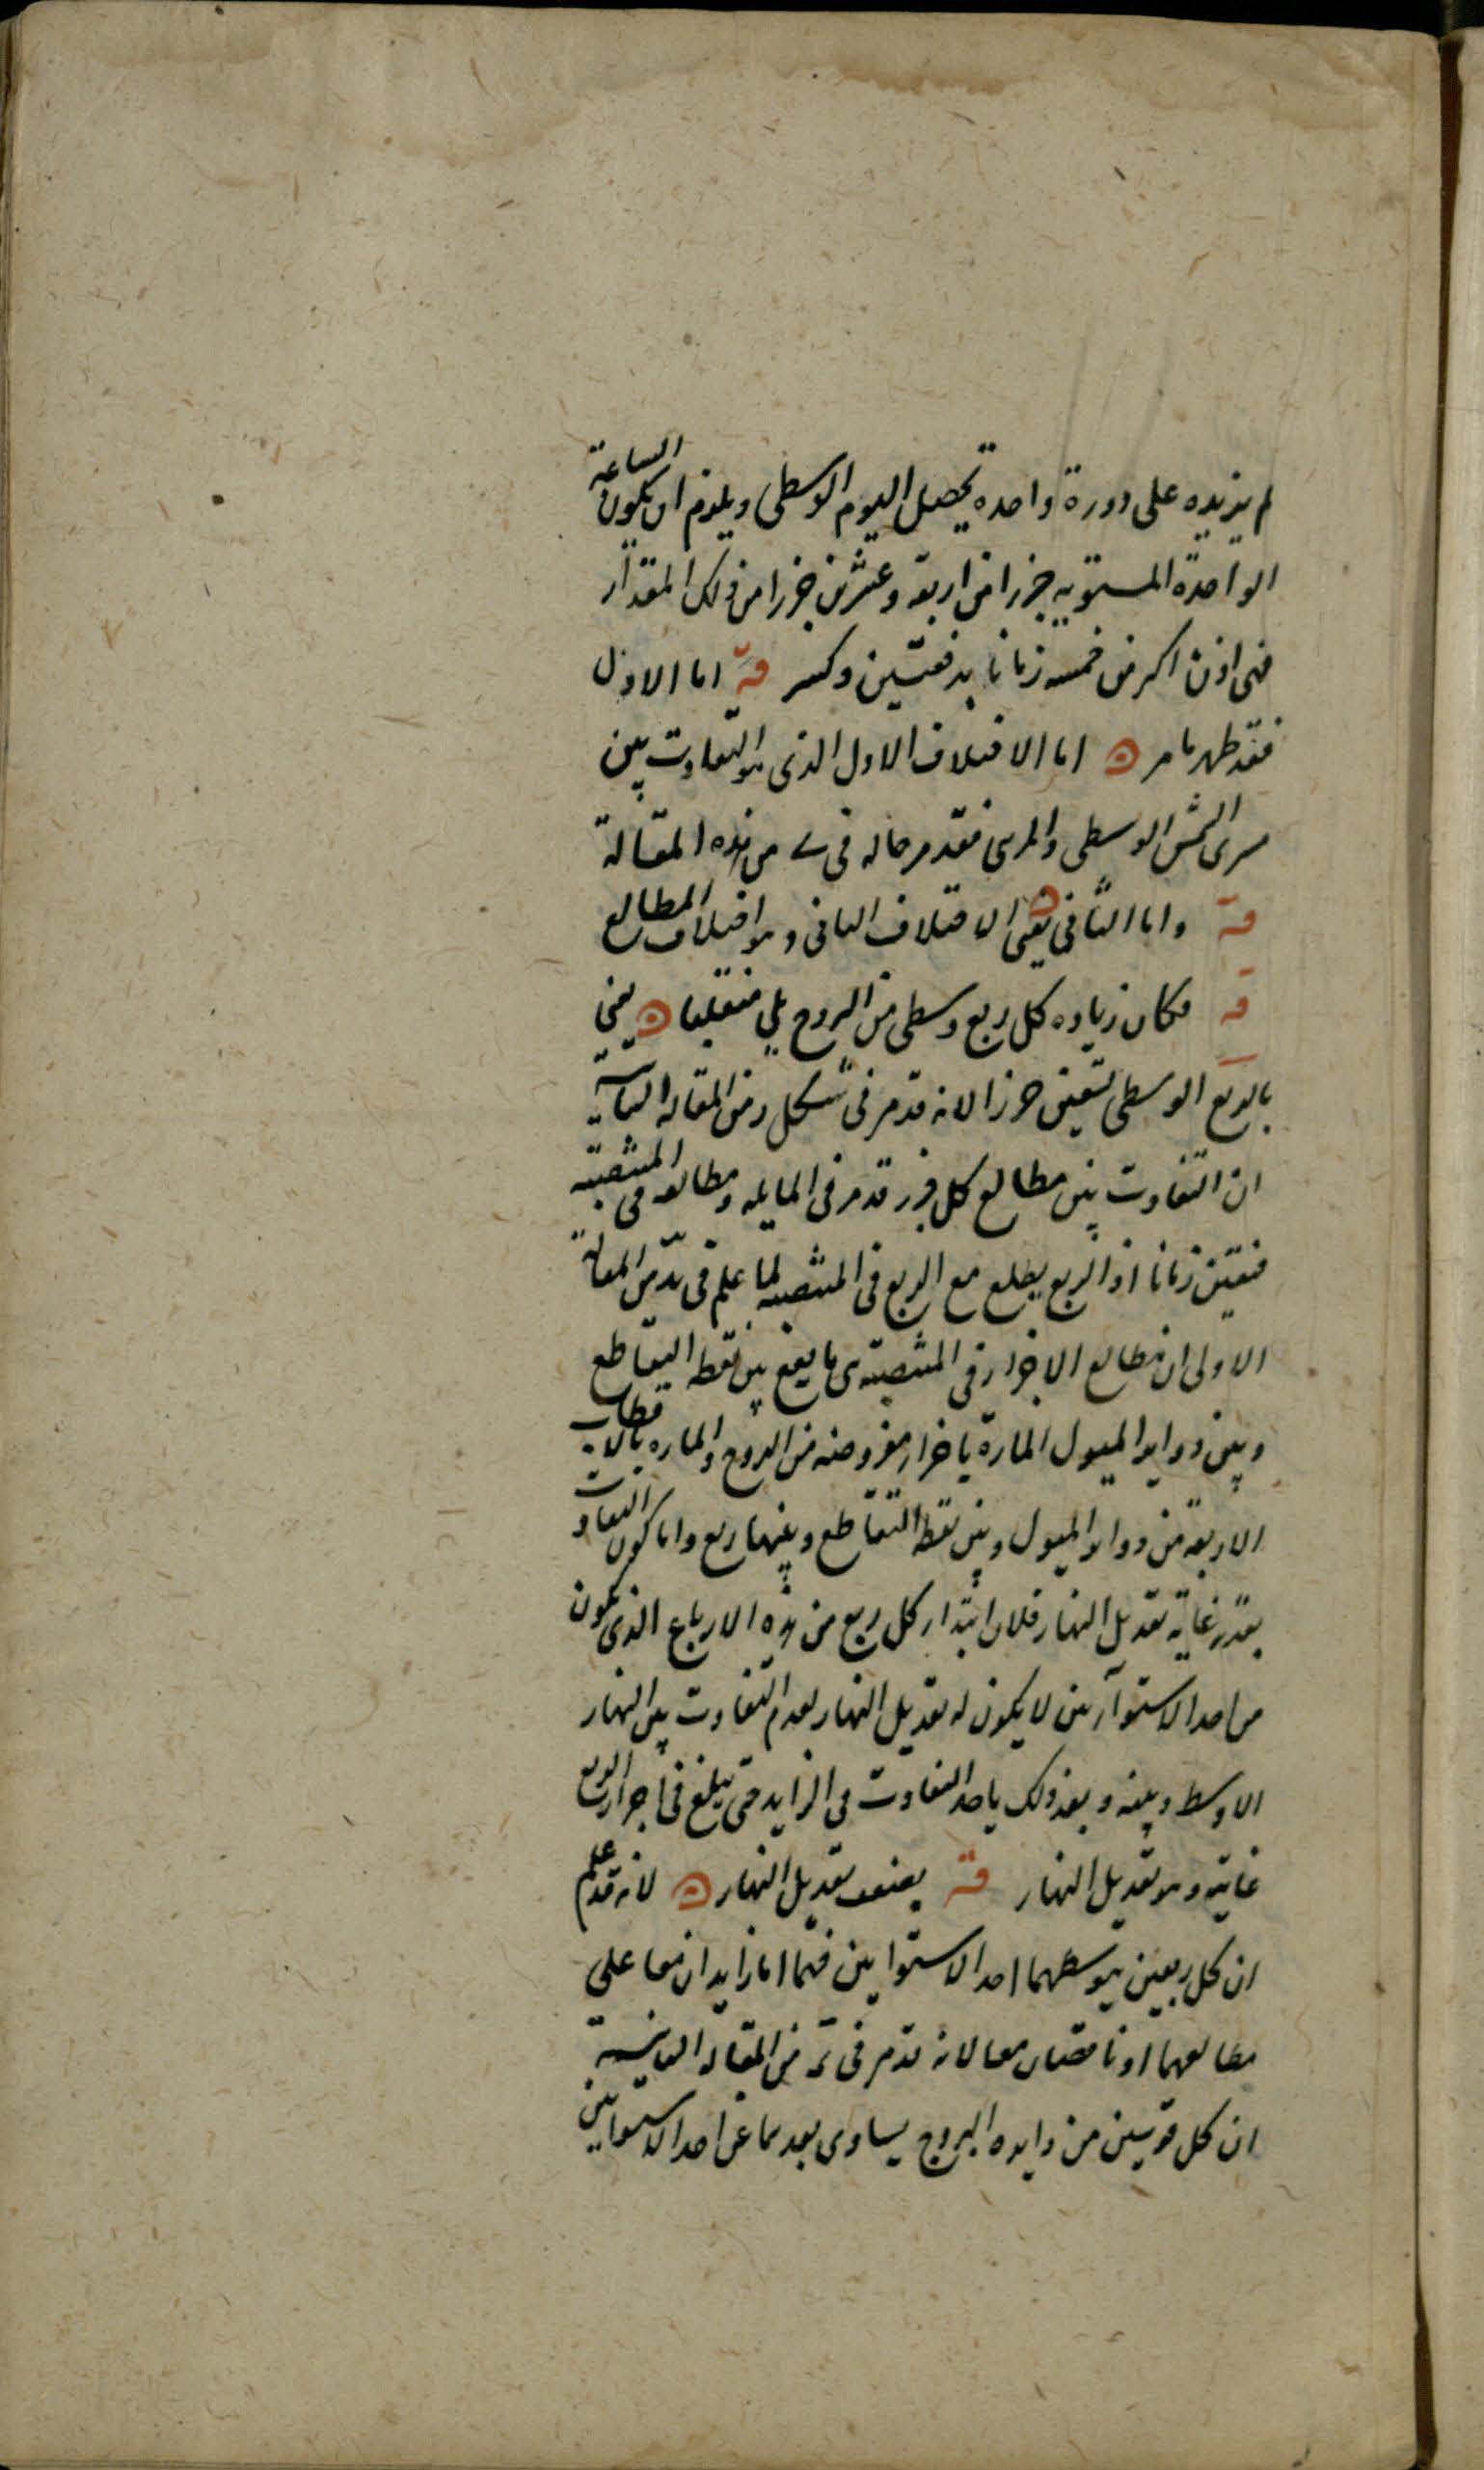 لم يزيده على دورة واحده يحصل اليوم الوسطى ويلزم ان يكون الساعة
الواحدة المستويه جزءا من اربعة وعشرين جزءا من ذلك المقدار
فهى اذن اكثر من خمسه زمانا بدقيقتين وكسر قه اما الاول
فقد ظهر مامر ه اما الاختلاف الاول الذى هو التفاوت بين
سرى الشمس الوسطى والمرئى فقد مر حاله فى من هذه المقالة
قه واما الثانى ه يعنى الاختلاف الثانى وهو اختلاف المطالع
قه فكان زياده كل ربع وسطى من البروج يلى منقلبا ه يعنى
بالربع الوسطى تسعين جزءا لانه قد مر فى شكل من المقاله الثانية
ان التفاوت بين مطالع كل جزء قد مر فى المايله ومطالعه فى المنتصبة
زمانا اذ الربع يطلع مع الربع فى المنتصبه لما علم فى من المقالة
الاولى ان مطالع الاجزاء فى المنتصبة هى ما يقع بين نقطه التقاطع
وبين دواير الميول المارة باجزاء مفروضه من البروج والماره بالاقطاب
الاربعة من دواير الميول وبين نقطه التقاطع وبينهما ربع واما كون التفاوت
بقدر غاية تعديل النهار فلان ابتداء كل ربع من هذه الارباع الذى يكون
من احد الاستوآءين لا يكون له تعديل النهار لعدم التفاوت بين النهار
الاوسط وبينه وبعد ذلك ياخذ التفاوت فى التزايد حتى يبلغ فى اجزاء الربع
غايته وهو تعديل النهار قه بضعف تعديل النهار ه لانه قد علم
ان كل ربعين يتوسطهما احد الاستواءين فهما اما زايدان معا على
مطالعهما او ناقصان معا لانه قد مر فى من المقاله الثانية
ان كل قوسين من دايره البروج يساوى بعدهما عن احد الاستواءين